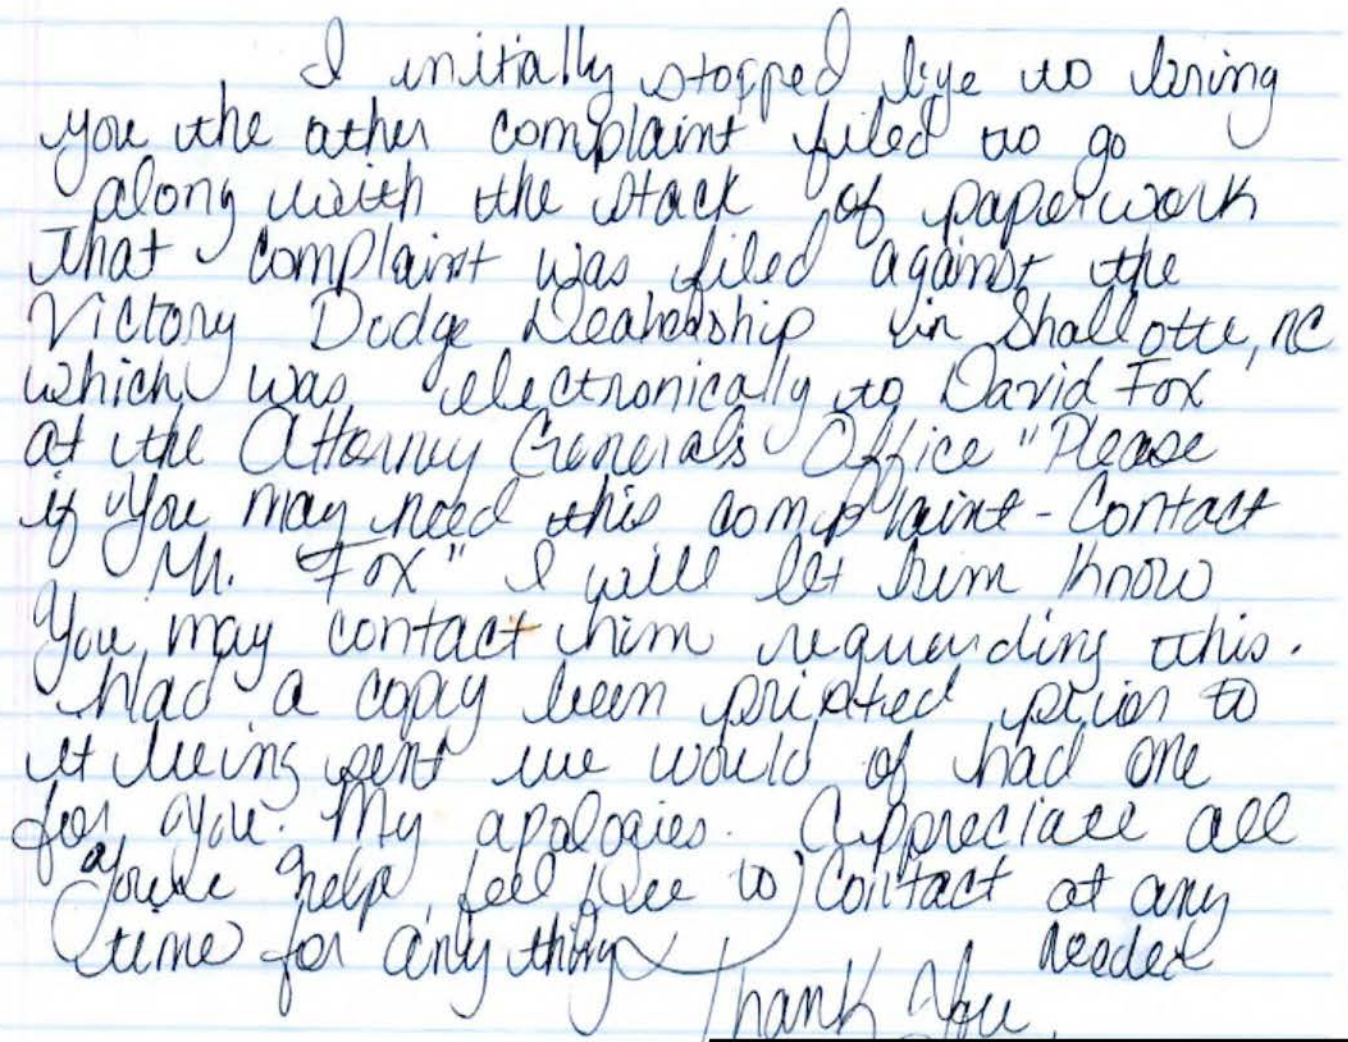 I initially stopped bye to bring
you the other complaint filed to go
along with the stack of paperwork
that complaint was filed against the
Victory Dodge Dealership in Shallotte, NC
which was electronically to David Fox
at the Attorney Generals Office "Please
if you may need this complaint - Contact
Mr. Fox" I will let him know
You may contact him reguarding this.
Had a copy been printed prior to
it being sent we would of had one
for you. My apologies. Appreciate all
your help, feel free to contact at any
time for any thing needed
Thank You.